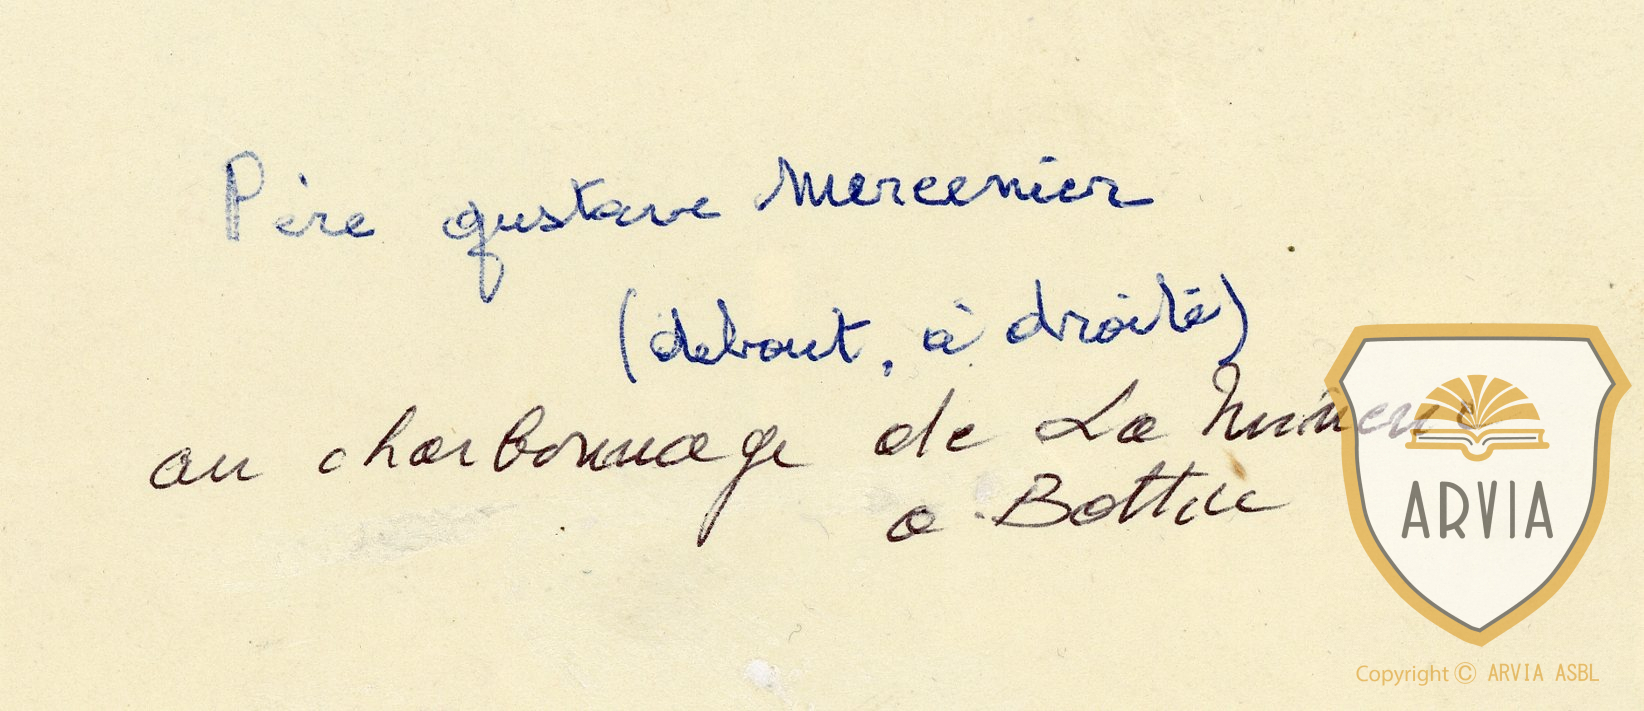 Père gustave Mercenier
(debout, à droite)
au charbonnage de La Minerie
a Battice
ARVIA
Copyright © ARVIA ASBL